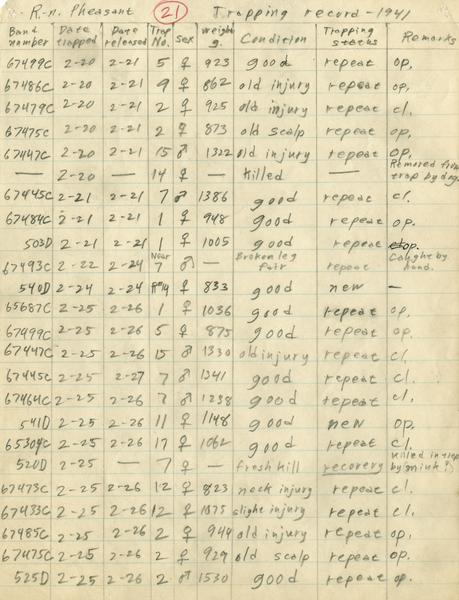 R.-n. Pheasant 21 Trapping record - 1941
Band number Date trapped Date released Trap No. Sex Weight g. Condition Trapping status Remarks
67499C 2-20 2-21 5 ♀ 923 good repeat op.
67486C 2-20 2-21 9 ♀ 862 old injury repeat op.
67479C 2-20 2-21 2 ♀ 925 old injury repeat cl.
67475C 2-20 2-21 2 ♀ 873 old scalp repeat op.
67447C 2-20 2-21 15 ♂ 1322 old injury repeat op.
— 2-20 — 14 ♀ — Killed — Removed from trap by dog.
67445C 2-21 2-21 7 ♂ 1386 good repeat cl.
67484C 2-21 2-21 1 ♀ 948 good repeat op.
503D 2-21 2-21 1 ♀ 1005 good repeat op.
67493C 2-22 2-24 Near 7 ♂ — Broken leg fair repeat Caught by hand.
540D 2-24 2-24 ♀ 833 good new —
65687C 2-25 2-26 1 ♀ 1036 good repeat op.
67499C 2-25 2-26 5 ♀ 875 good repeat op.
67447C 2-25 2-26 15 ♂ 1330 old injury repeat cl.
67445C 2-25 2-27 7 ♂ 1341 good repeat cl.
67464C 2-25 2-26 7 ♂ 1238 good repeat cl.
541D 2-25 2-26 11 ♀ 1148 good new op.
65304C 2-25 2-26 17 ♀ 1062 good repeat cl.
520D 2-25 — 7 ♀ — fresh kill recovery Killed in trap by mink?
67473C 2-25 2-26 12 ♀ 823 neck injury repeat cl.
67433C 2-25 2-26 12 ♀ 1075 slight injury repeat cl.
67485C 2-25 2-26 2 ♀ 944 old injury repeat op.
67475C 2-25 2-26 2 ♀ 929 old scalp repeat op.
525D 2-25 2-26 2 ♂ 1530 good repeat op.